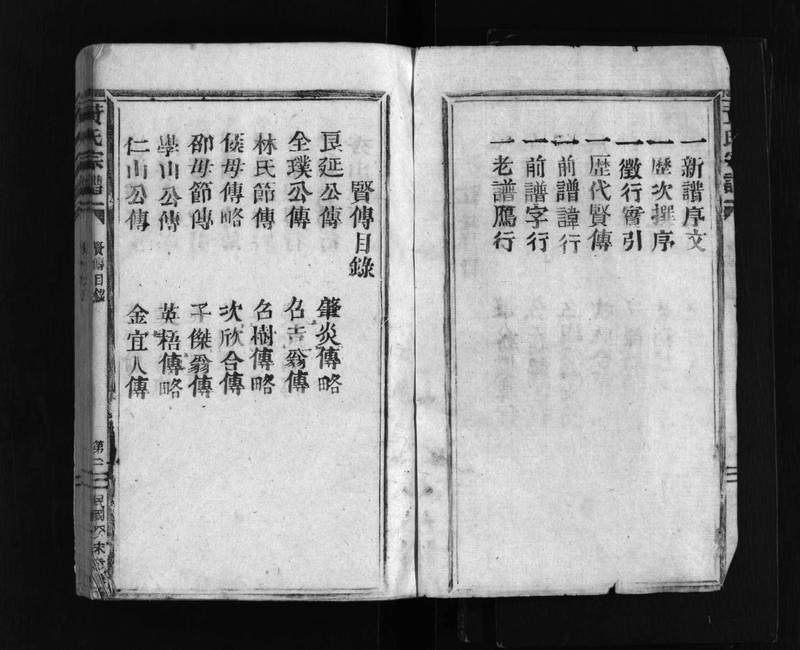 一新譜序文
一歷次撰序
一徵行實引
一歷代賢傳
一前譜諱行
一前譜字行
一老譜鴈行
賢傳目錄
良延公傳 肇炎傳略
全璞公傳 名吉翁傳
林氏節傳 名樹傳略
侯母傳略 次欣合傳
邵母節傳 子傑翁傳
學山公傳 英梧傳略
仁山公傳 金宜人傳
黃氏宗譜
賢傳目錄
第二
民國